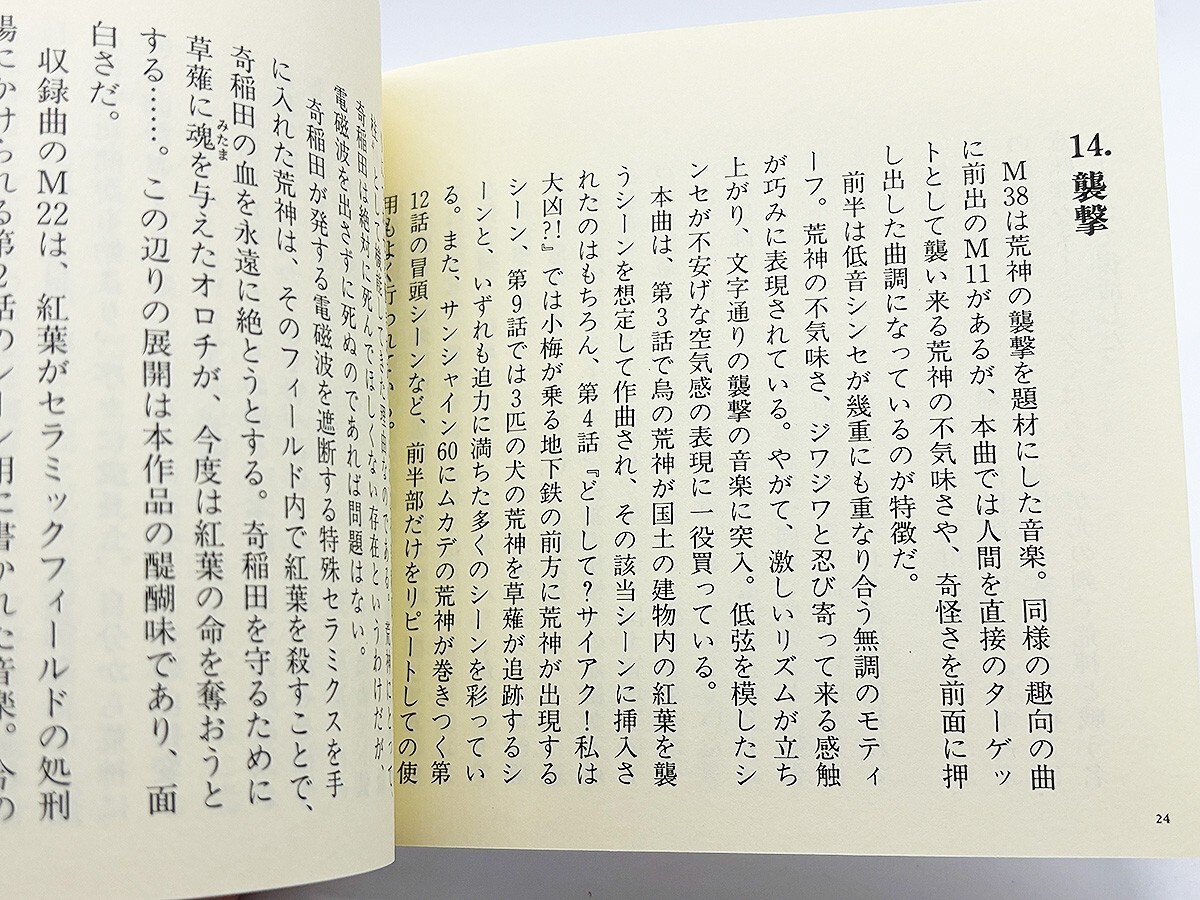 14. 襲撃
M38は荒神の襲撃を題材にした音楽。同様の趣向の曲
に前出のM11があるが、本曲では人間を直接のターゲッ
トとして襲い来る荒神の不気味さや、奇怪さを前面に押
し出した曲調になっているのが特徴だ。
前半は低音シンセが幾重にも重なり合う無調のモティ
ーフ。荒神の不気味さ、ジワジワと忍び寄って来る感触
が巧みに表現されている。やがて、激しいリズムが立ち
上がり、文字通りの襲撃の音楽に突入。低弦を模したシ
ンセが不安げな空気感の表現に一役買っている。
本曲は、第3話で烏の荒神が国土の建物内の紅葉を襲
うシーンを想定して作曲され、その該当シーンに挿入さ
れたのはもちろん、第4話『どーして？サイアク！私は
大凶！？』では小梅が乗る地下鉄の前方に荒神が出現する
シーン、第9話では3匹の犬の荒神を草薙が追跡するシ
ーンと、いずれも迫力に満ちた多くのシーンを彩ってい
る。また、サンシャイン60にムカデの荒神が巻きつく第
12話の冒頭シーンなど、前半部だけをリピートしての使
用もよく行われて
24
として機能してきた理由なのである。荒神にとって、
奇稲田は絶対に死んでほしくない存在というわけだが、
電磁波を出さずに死ぬのであれば問題はない。
奇稲田が発する電磁波を遮断する特殊セラミクスを手
に入れた荒神は、そのフィールド内で紅葉を殺すことで、
奇稲田の血を永遠に絶とうとする。奇稲田を守るために
草薙に魂みたまを与えたオロチが、今度は紅葉の命を奪おうと
する……。この辺りの展開は本作品の醍醐味であり、面
白さだ。
収録曲のM22は、紅葉がセラミックフィールドの処刑
場にかけられる第2話のシーン用に書かれた音楽。今の